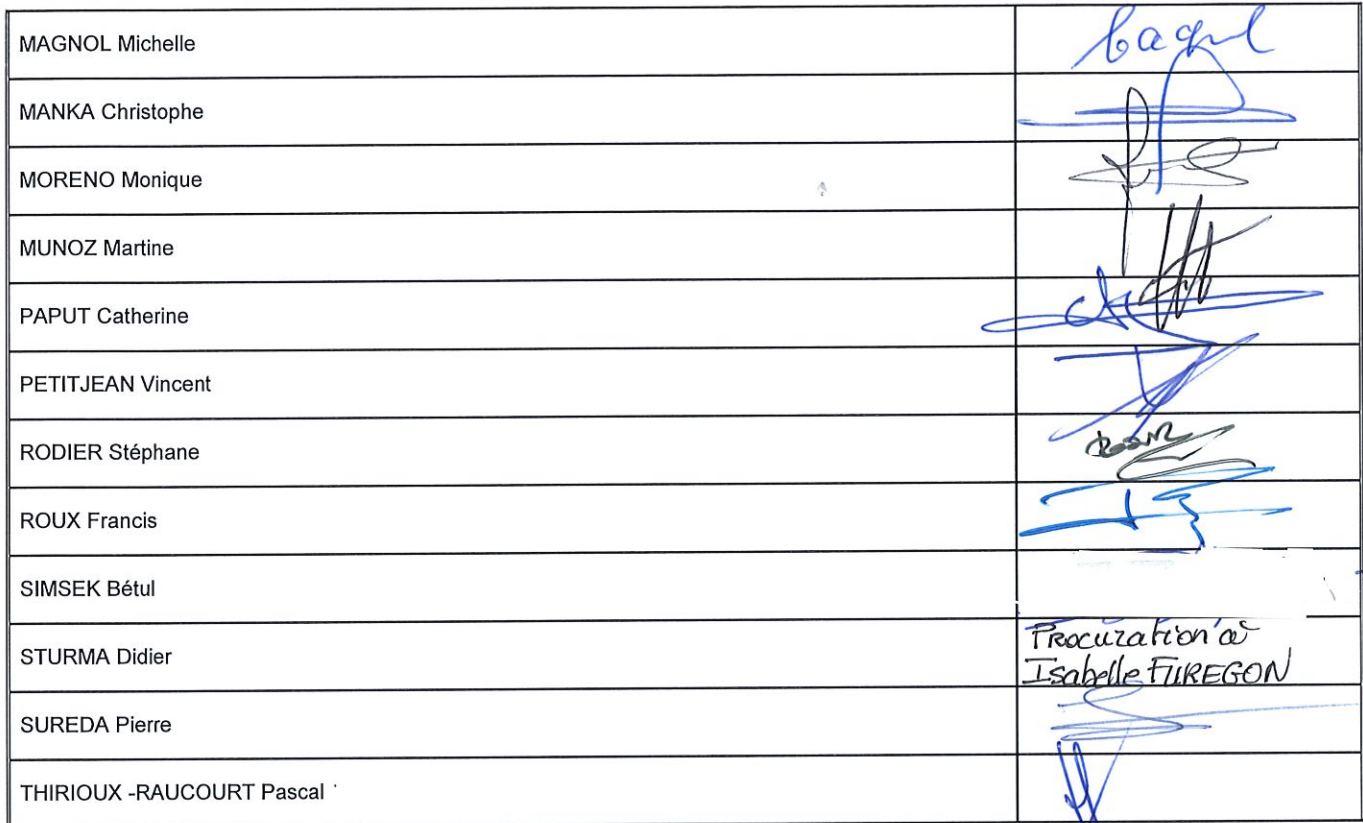 MAGNOL Michelle
MANKA Christophe
MORENO Monique
MUNOZ Martine
PAPUT Catherine
PETITJEAN Vincent
RODIER Stéphane
ROUX Francis
SIMSEK Bétul
STURMA Didier
Procuration à
Isabelle FUREGON
SUREDA Pierre
THIRIOUX -RAUCOURT Pascal